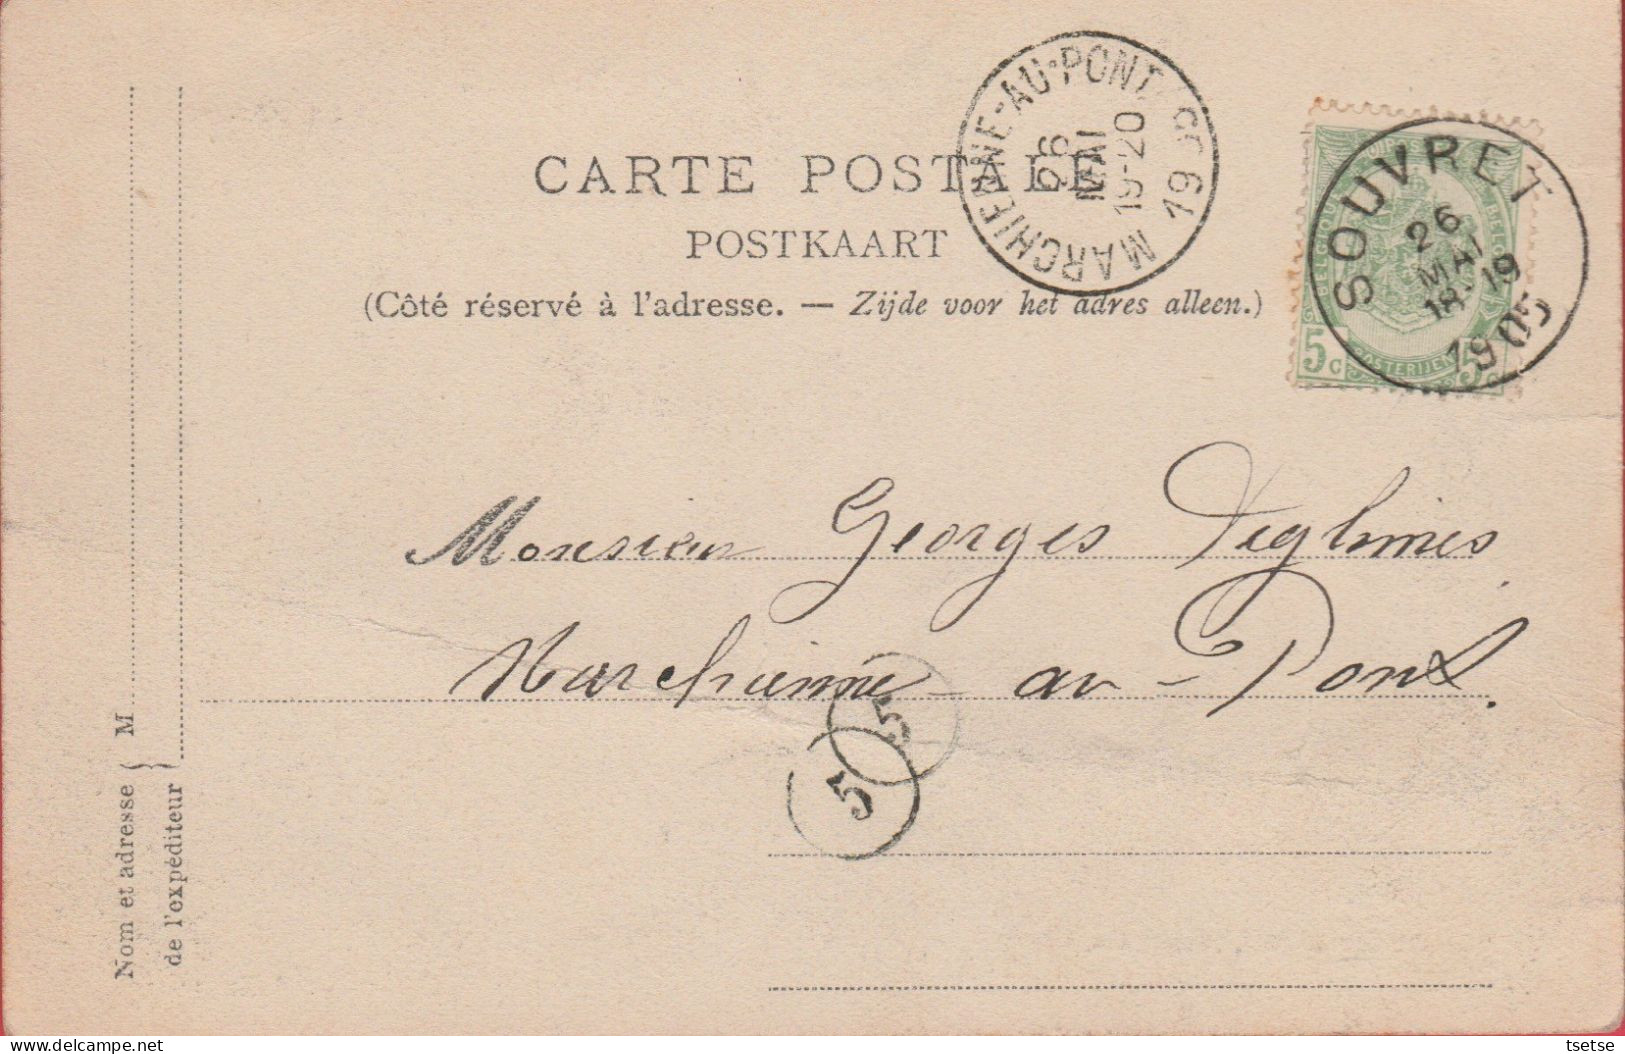 CARTE POSTALE
POSTKAART
(Côté réservé à l'adresse. — Zijde voor het adres alleen.)
MARCHIENNE-AU-PONT
26
MAI
19-20
19
SOUVRET
26
MAI
18-19
1905
5c
POSTERIJEN
5c
Monsieur Georges
Marchienne-au-Pont.
5
5
M
Nom et adresse
de l'expéditeur
delcampe.net
tsetse